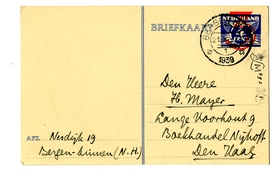 BRIEFKAART
NEDERLAND
1939
Den Heere
H. Mayer
Lange Voorhout 9
Boekhandel Nijhoff
Den Haag
AFZ. Nesdijk 19
Bergen-binnen (N.H.)